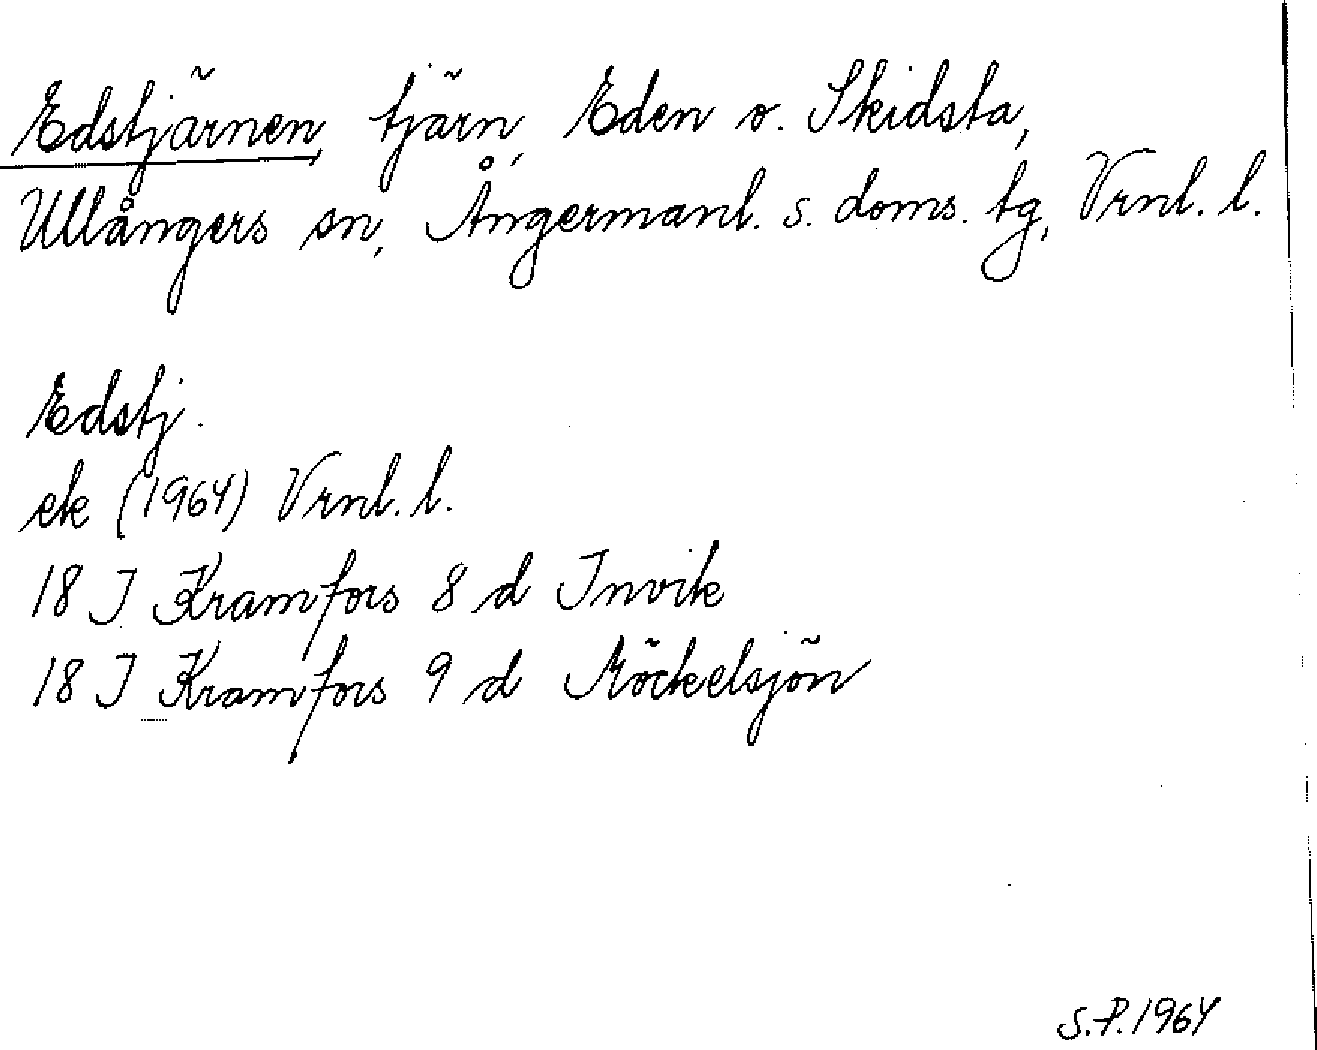 Edstjärnen, tjärn, Eden o. Skidsta,
Ullångers sn, Ångermanl. s. doms. tg, Vrnl. l.
Edstj.
ek (1964) Vrnl. l.
18 J Kramfors 8 d Invik
18 J Kramfors 9 d Möckelsjön
S.P. 1964